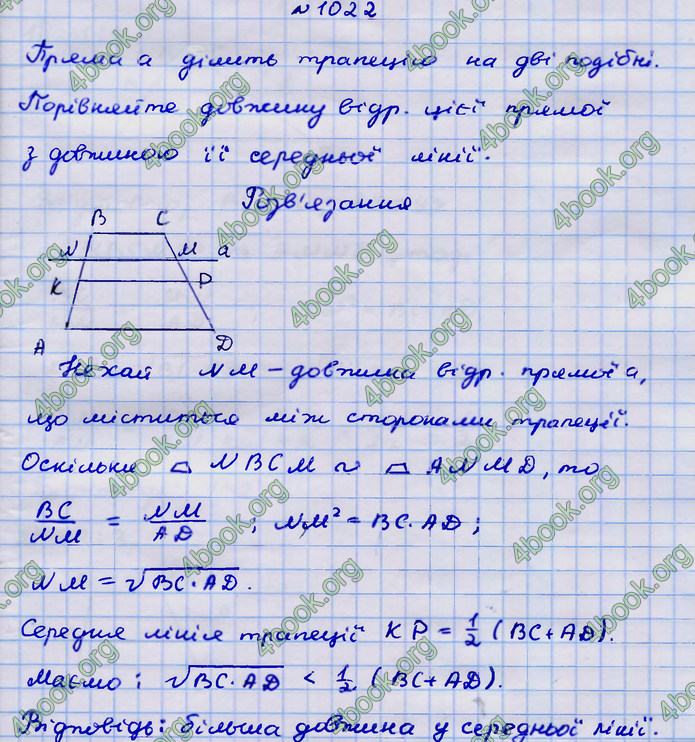 № 1022
Пряма а ділить трапецію на дві подібні.
Порівняйте довжину відр. цієї прямої
з довжиною її середньої лінії.
Розв'язання
B C
N M a
K P
A D
Нехай NM – довжина відр. прямої а,
що міститься між сторонами трапеції.
Оскільки ⏢ NBCM ~ ⏢ ANMD, то
BC/NM = NM/AD ; NM² = BC · AD ;
NM = √BC · AD.
Середня лінія трапеції KP = 1/2 (BC + AD).
Маємо: √BC · AD < 1/2 (BC + AD).
Відповідь: більша довжина у середньої лінії.
4book.org